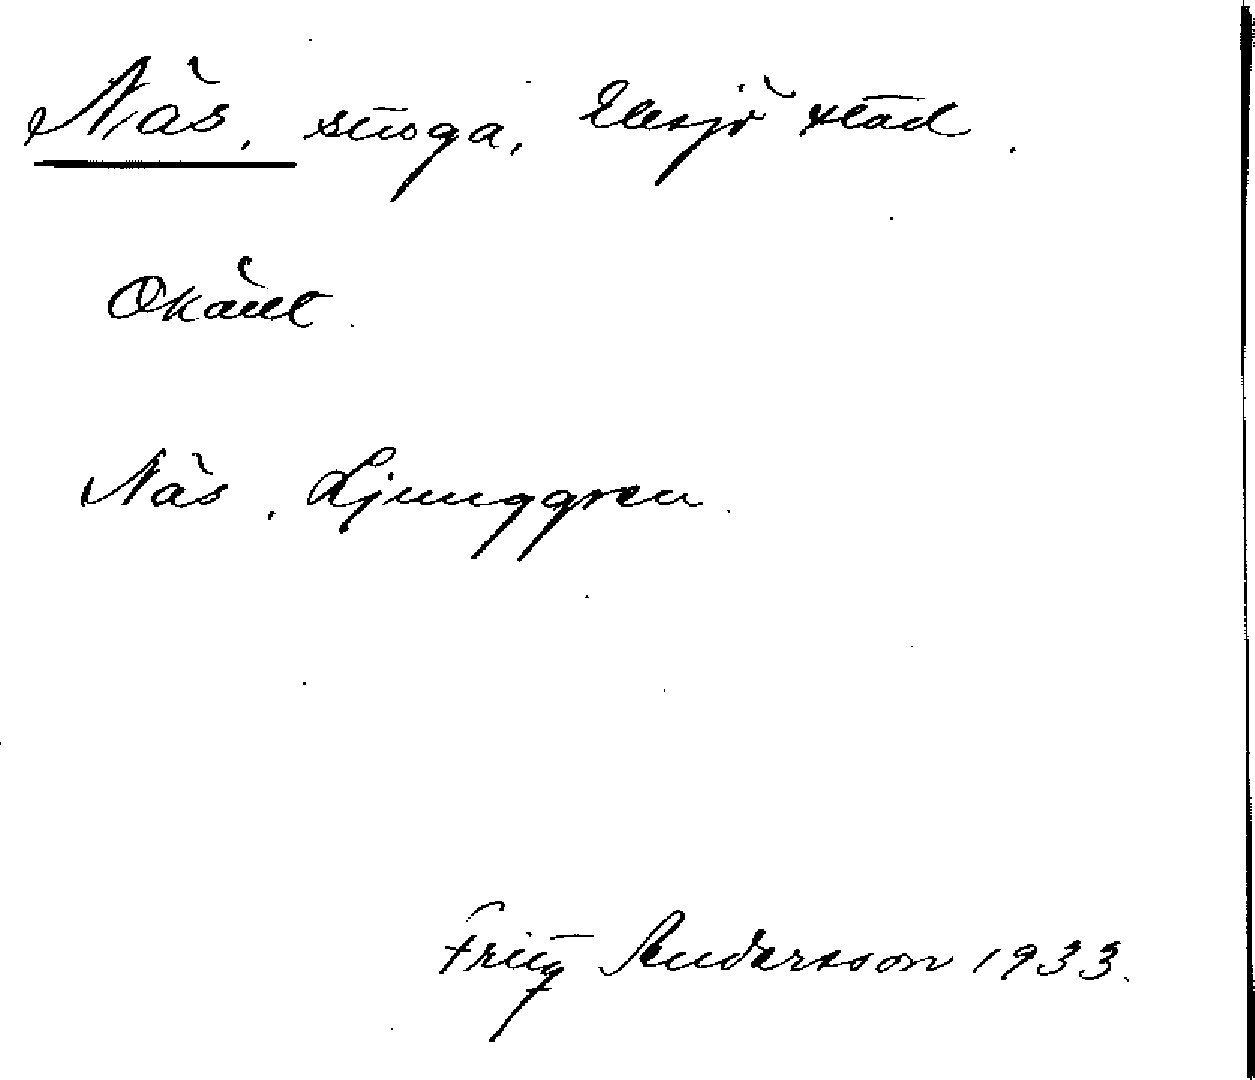 Näs, stuga, Eksjö stad.
Okänt.
Näs, Ljunggren.
Fritz Andersson 1933.